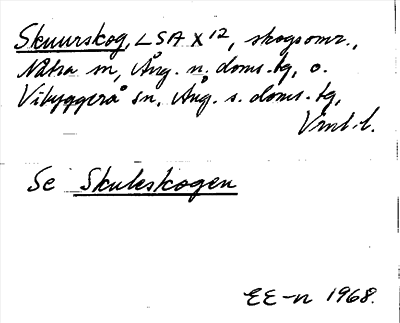 Skuurskog, LSA X 12, skogsomr.,
Nätra sn, Ång. n. doms. tg, o.
Vibyggerå sn, Ång. s. doms. tg,
Vnl. l.
Se Skuleskogen
EE-n 1968.